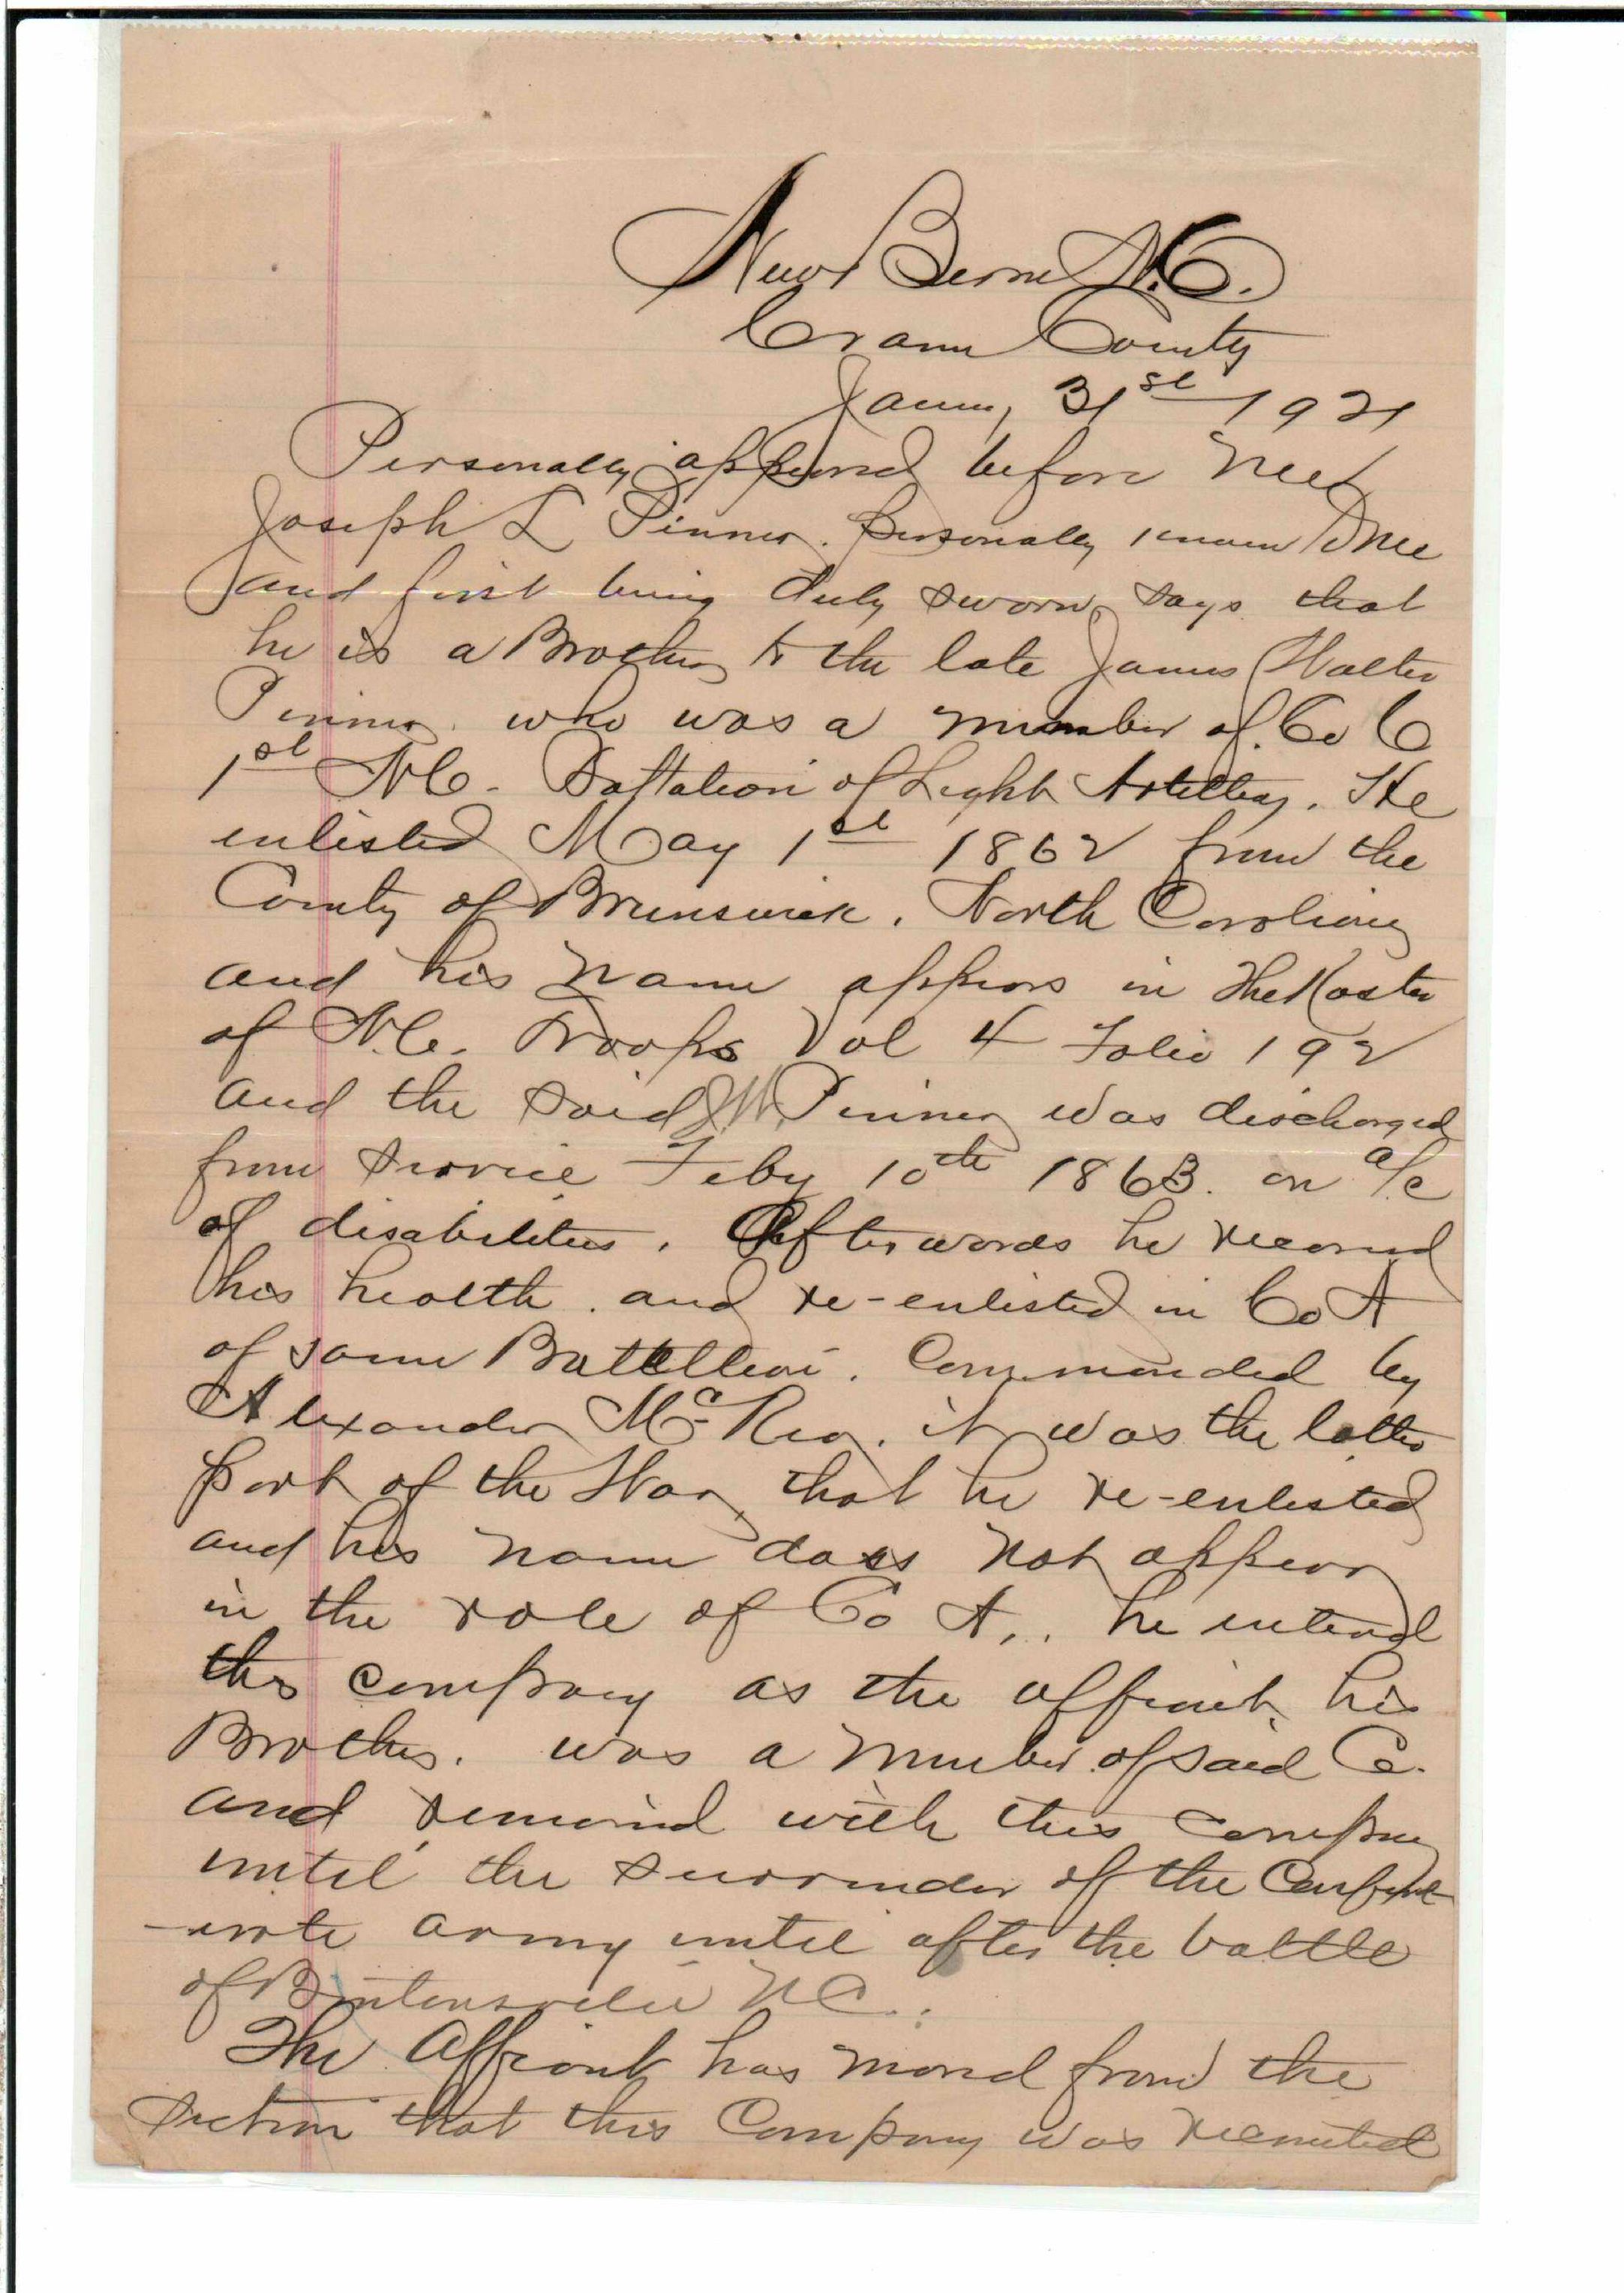 New Bern N.C.
Craven County
Jany, 31st 1921
Personally appeared before me
Joseph L Pinner. personally known to me
and first being duly sworn, says that
he is a Brother to the late James Walter
Pinner. who was a member of Co C
1st N.C. Battalion of Light Artillery. He
enlisted May 1st 1862 from the
County of Brunswick. North Carolina
and his name appears in the Roster
of N.C. Troops Vol 4 Folio 192
and the said J.W. Pinner was discharged
from service Feby 10th 1863. on a/c
of disabilities. Afterwards he recovered
his health. and re-enlisted in Co A
of same Battellion. Commanded by
Alexander McRea. it was the latter
part of the War, that he re-enlisted
and his name does not appear
in the role of Co A,. he entered
this company as the affiant, his
Brother. was a member of said Co.
and remained with this company
until the surrender of the Confed
-erate army until after the battle
of Bentonsville N.C.
The Affiant has moved from the
section that this Company was recruited